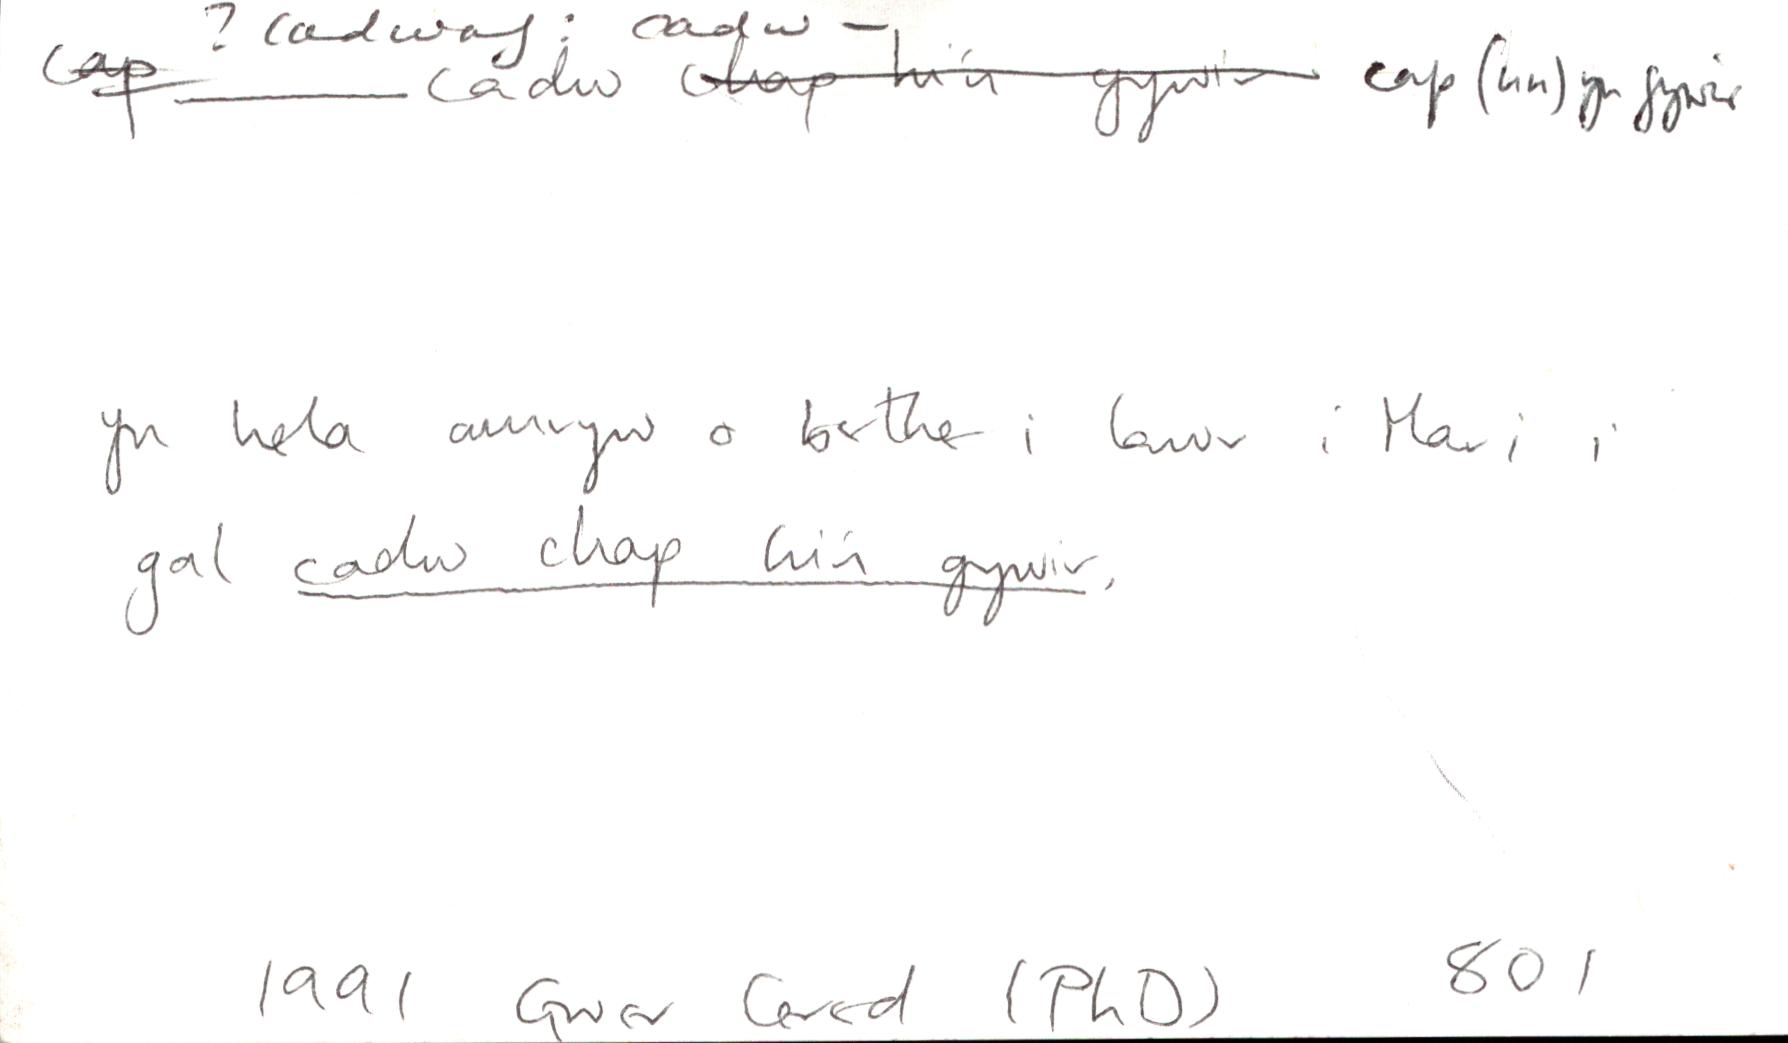 ? cadwaf: cadw –
cap cadw chap hi'n gywir cap (hi'n) yn gywir
yn hela amryw o berthe i lawr i Mari i
gal cadw chap hi'n gywir.
1991 Gwer Cered (PhD) 801